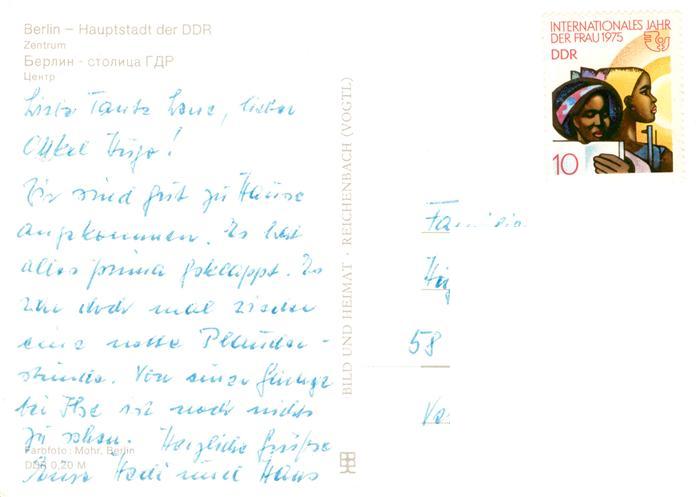 Berlin – Hauptstadt der DDR
Zentrum
Берлин - столица ГДР
Центр
Liebe Tante Lene, lieber
Onkel Hugo!
Wir sind gut zu Hause
angekommen. Es hat
alles prima geklappt. Es
war doch mal wieder
eine nette Plauder-
stunde. Von einer
bei Ilse ist noch nichts
zu sehen. Herzliche Grüße
Eure Hedi und Hans
Farbfoto: Mohr, Berlin
DDR 0,20 M
BILD UND HEIMAT · REICHENBACH (VOGTL)
INTERNATIONALES JAHR
DER FRAU 1975
DDR
10
Familie
58